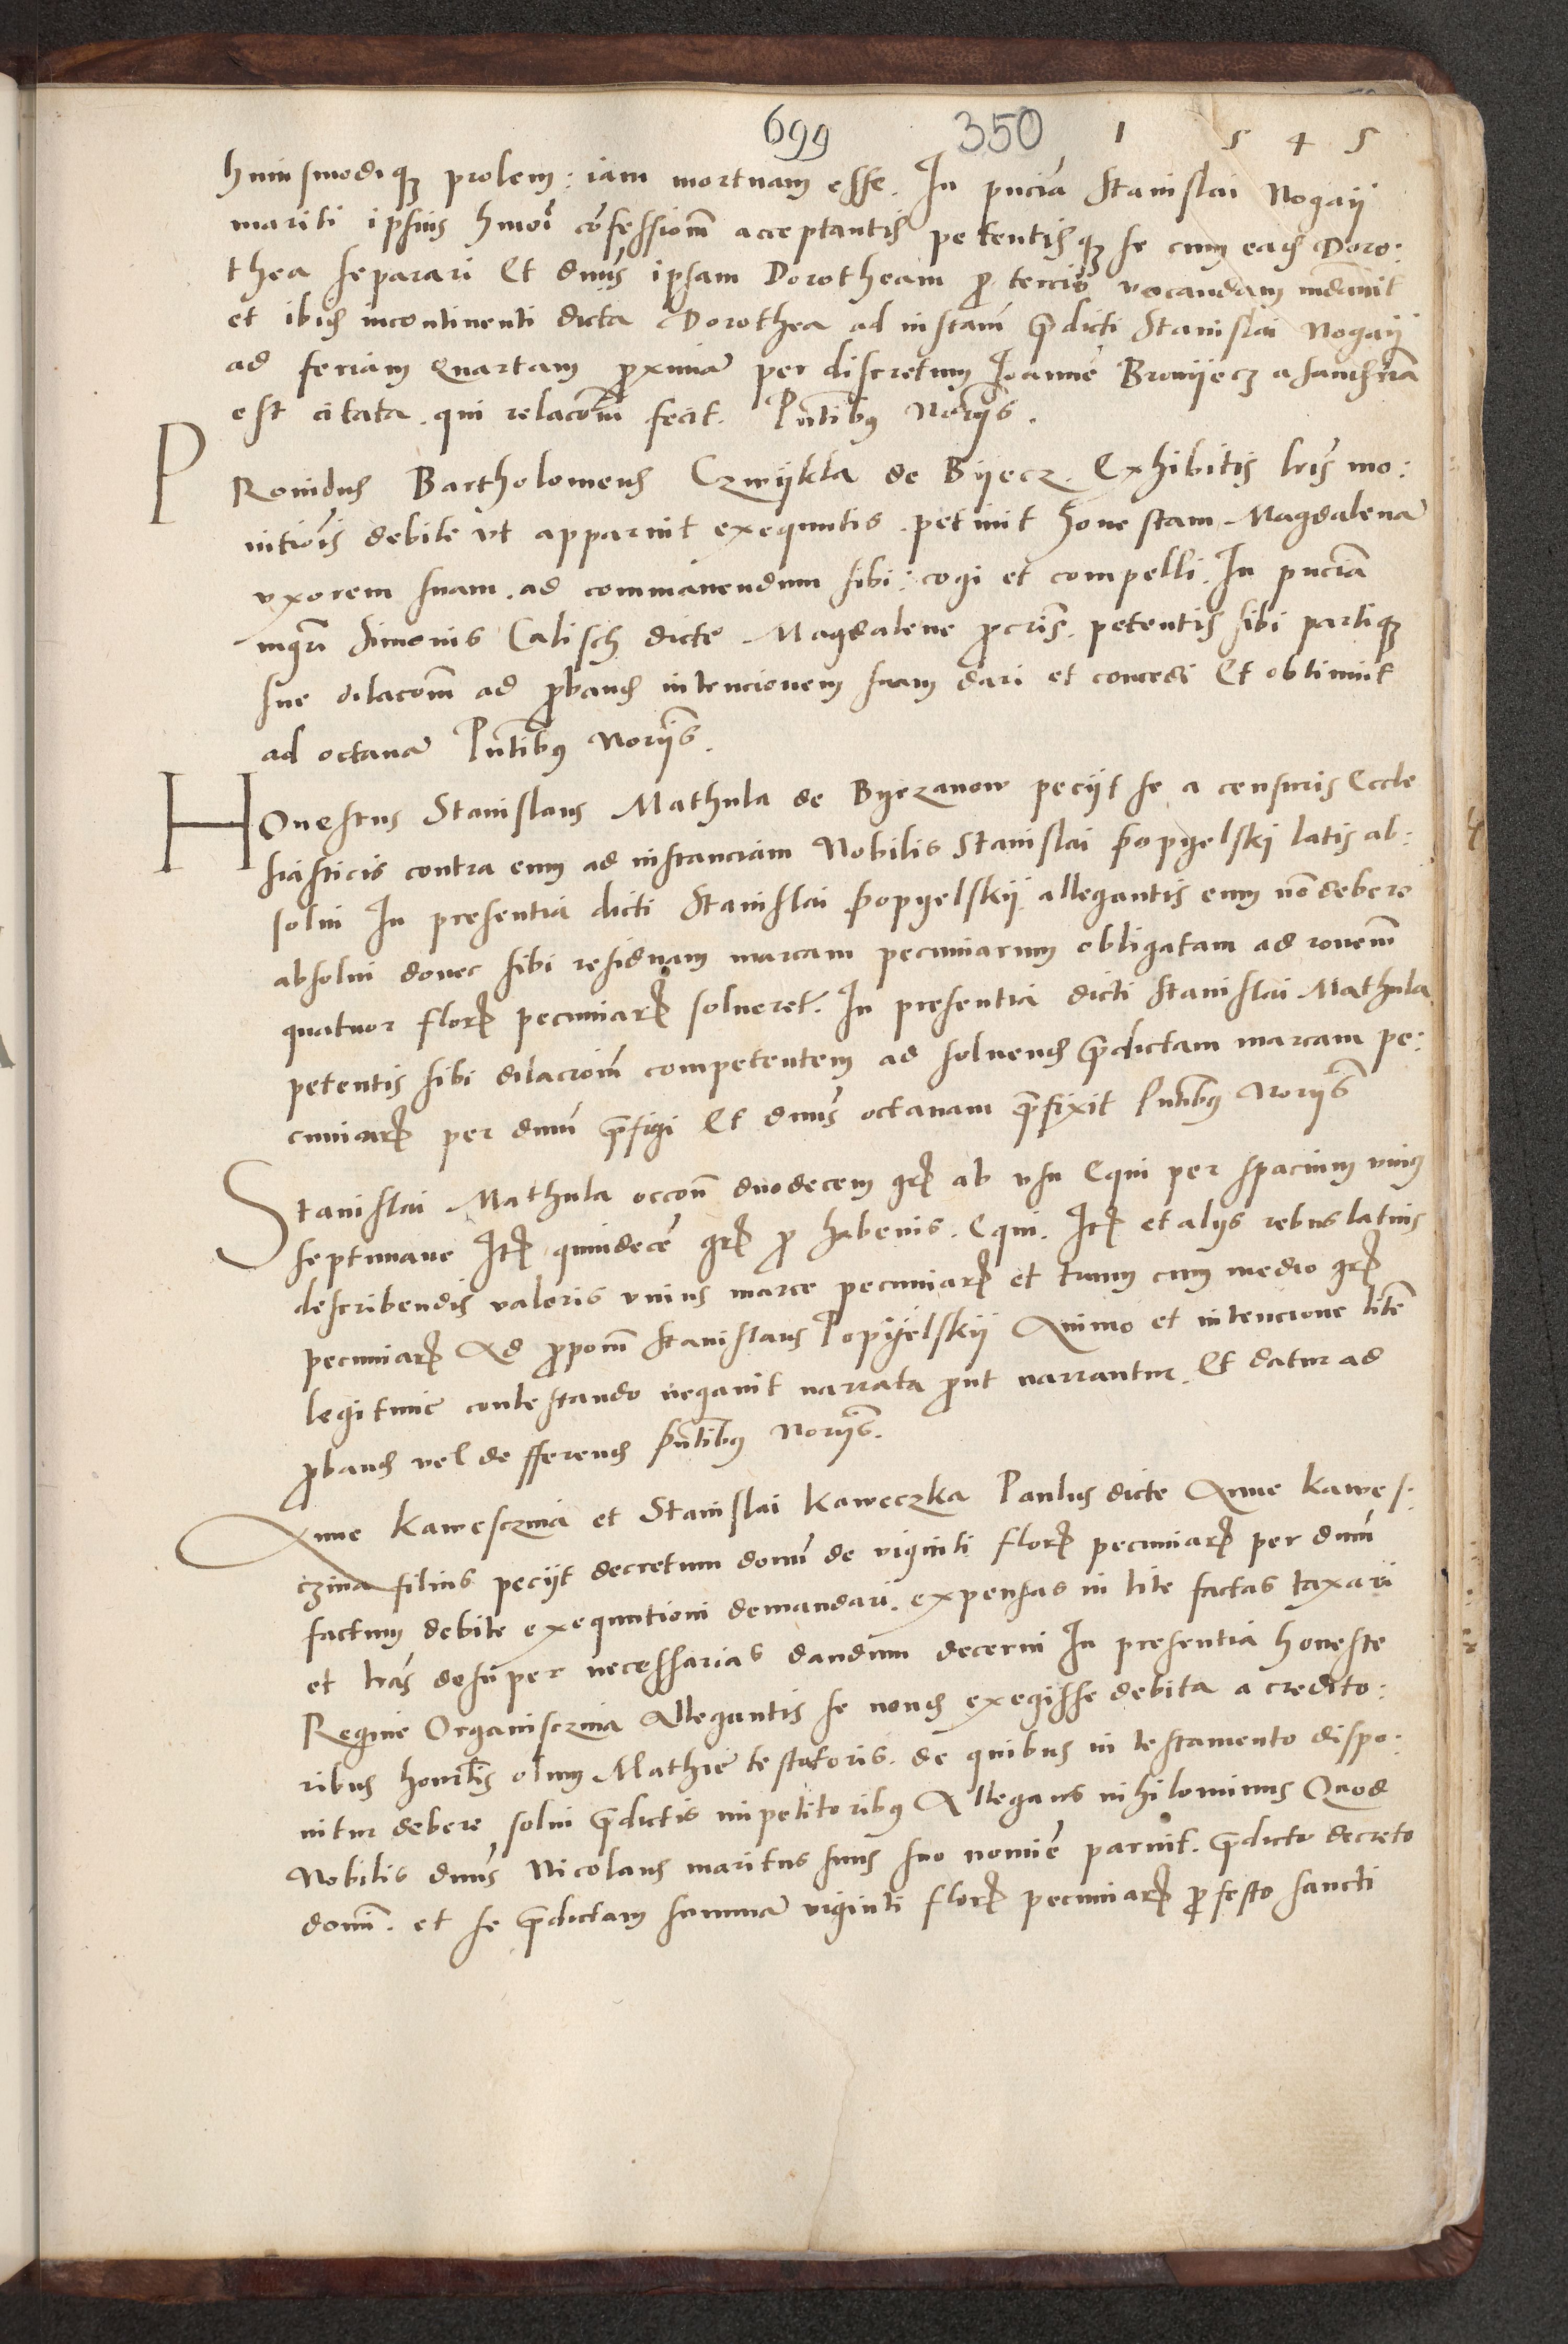 699 350 1 5 4 5
huiusmodiqȝ prolem: iam mortuam esse. In pnciã Stanislai Nogaij
mariti ipsius hmõi cõfessionẽ acceptantis petentisqȝ se cum ead Doro:
thea separari Et dnũs ipsam Dorotheam p tercio vocandam
et ibid incontinenti dicta Dorothea ad instam pdicti Stanislai Nogaij
ad feriam quartam pximã per discretum Joannẽ
est citata. qui relacoñm fecit. Pntibus Noriis.
PRouidus Bartholomeus Czwijkla de Bijecz. Exhibitis lrĩs mo:
nitiois debite vt apparuit exequutis. petiuit honestam Magdalenã
vxorem suam. ad commanendum sibi: cogi et compelli. In pnciã
mgrĩ Simonis Calisch dicte Magdalene pcris. petentis sibi partiqȝ
sue dilacom ad pband intencionem suam dari et concedi Et obtinuit
ad octauã Pntibus Noriis.
HOnestus Stanislaus Mathula de Byezanow peciit se a censuris Eccle
siasticis contra eum ad instanciam Nobilis Stanislai Popyelskij latis ab:
solui In presentia dicti Stanislai Popyelskij allegantis eum nõ debere
absolui donec sibi residuam marcam pecuniarum obligatam ad ronem
quatuor flor pecuniar solueret. In presentia dicti Stanislai Mathula
petentis sibi dilacionẽ competentem ad soluend pdictam marcam pe:
cuniar per dnũm pfigi Et dnũs octauam pfixit Pntibus Noriis
Stanislai Mathula occoñ duodecem gr ab vsu Equi per spacium vnius
septimane Itẽ quindecẽ gr p habenis. Equi. Itẽ et alijs rebus latius
describendis valoris vnius marce pecuniar et trium cum medio gr
pecuniar Ad pponẽ Stanislaus Popijelskij Animo et intencione litẽ
legitime contestando negauit narrata put narrantur. Et datur ad
pband vel defferend Pntibus Noriis.
Anne Kawesczina et Stanislai Kaweczka Paulus dicte Anne Kawes:
czina filius peciit decretum domĩ de viginti flor pecuniar per dnũm
factum debite exequutioni demandari. expensas in lite factas taxari
et lrãs desuper necessarias dandum decerni In presentia honeste
Regine Organisczina Allegantis se nond exegisse debita a credito:
ribus olim Mathie testatoris. de quibus in testamento dispo:
nitur debere solui pdictis impetitoribus Allegans nihilominus Quod
Nobilis dnũs Nicolaus maritus suus suo nomiẽ paruit. pdicto decreto
domĩ. et se pdictam summã viginti flor pecuniar p festo sancti